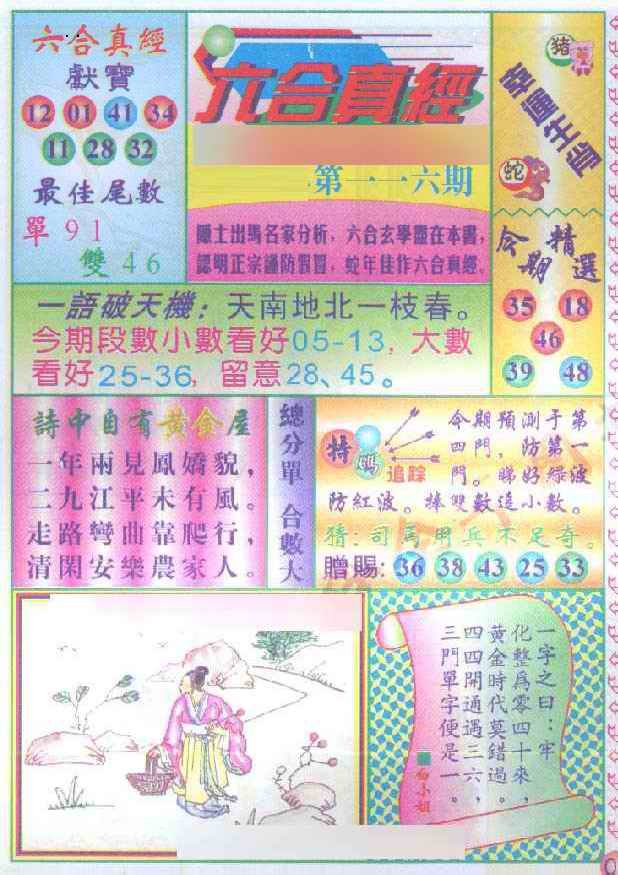 六合真經
獻寶
12 01 41 34
11 28 32
最佳尾數
單 91
雙 46
六合真經
第一一六期
隱士出馬名家分析，六合玄學盡在本書，
認明正宗謹防假冒，蛇年佳作六合真經。
豬
蛇
今期精選
35 18
46
39 48
一語破天機：天南地北一枝春。
今期段數小數看好05-13，大數
看好25-36，留意28、45。
詩中自有黃金屋
一年兩見鳳嬌貌，
二九江平未有風。
走路彎曲靠爬行，
清閑安樂農家人。
總分單 合數大
特碼
追踪
今期預測于第
四門，防第一
門。睇好綠波
防紅波。捧雙數追小數。
猜：司馬用兵不足奇。
贈賜：36 38 43 25 33
一字之曰：牢
化整爲零四十來，
黃金時代莫錯過。
四四開通遇三六，
三門單字便是一。
白小姐